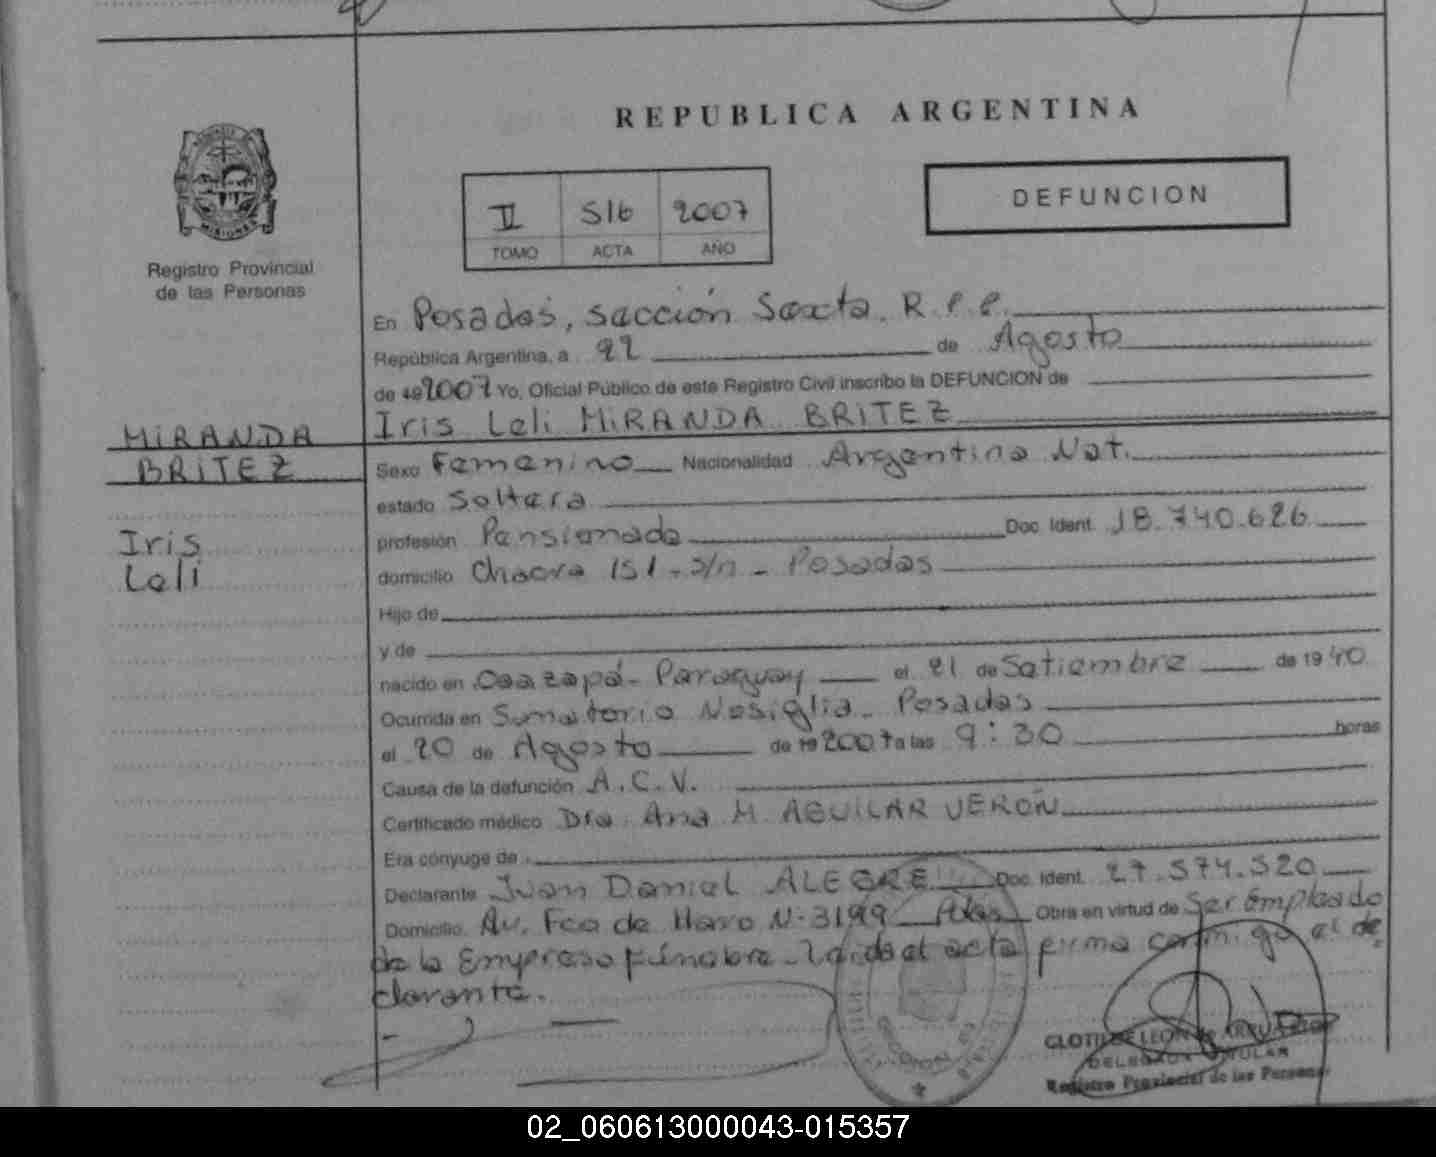 REPUBLICA ARGENTINA
MISIONES
Registro Provincial
de las Personas
II 516 2007
TOMO ACTA AÑO
DEFUNCION
En Posadas, sección Sexta. R.P.P.
República Argentina, a 22 de Agosto
de 19 2007 Yo, Oficial Público de este Registro Civil inscribo la DEFUNCION de
Iris Leli MIRANDA BRITEZ
MIRANDA
BRITEZ
Iris
Leli
Sexo Femenino Nacionalidad Argentina Nat.
estado Soltera
profesión Pensionada Doc. Ident. 18.740.626
domicilio Chacra 151 - s/n - Posadas
Hijo de
y de
nacido en Caazapá - Paraguay el 21 de Setiembre de 1940
Ocurrida en Sanatorio Nosiglia - Posadas
el 20 de Agosto de 19 2007 a las 9:30 horas
Causa de la defunción A.C.V.
Certificado médico Dra. Ana M. AGUILAR VERÓN
Era cónyuge de
Declarante Juan Daniel ALEGRE Doc. Ident. 27.574.520
Domicilio Av. Fco de Haro N° 3199 Pdas Obra en virtud de Ser Empleado
de la Empresa fúnebre - Leída el acta firma conmigo el de
clarante.
CLOTILDE LEON de
DELEGADA TITULAR
Registro Provincial de las Personas
02_060613000043-015357